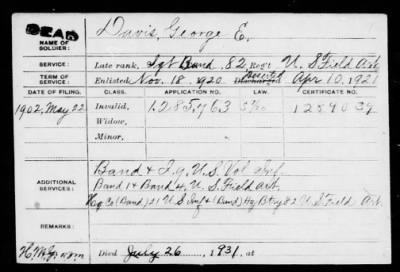 DEAD
Davis, George E.
NAME OF SOLDIER:
SERVICE: Late rank, Sgt Band, 82 Reg't U. S. Field Art
TERM OF SERVICE: Enlisted Nov. 18, 1920 Discharged Deserted Apr 10, 1921
DATE OF FILING. CLASS. APPLICATION NO. LAW. CERTIFICATE NO.
1902, May 22 Invalid, 1285763
Widow,
Minor,
ADDITIONAL SERVICES:
Band & I, 9, U.S. Vol Inf.
Band 1 & Band 4, U. S. Field Art.
Hq Co (Band) 21 U S Inf & (Band) Hq Btry 82 U S Field Art
REMARKS:
Died July 26, 1931, at